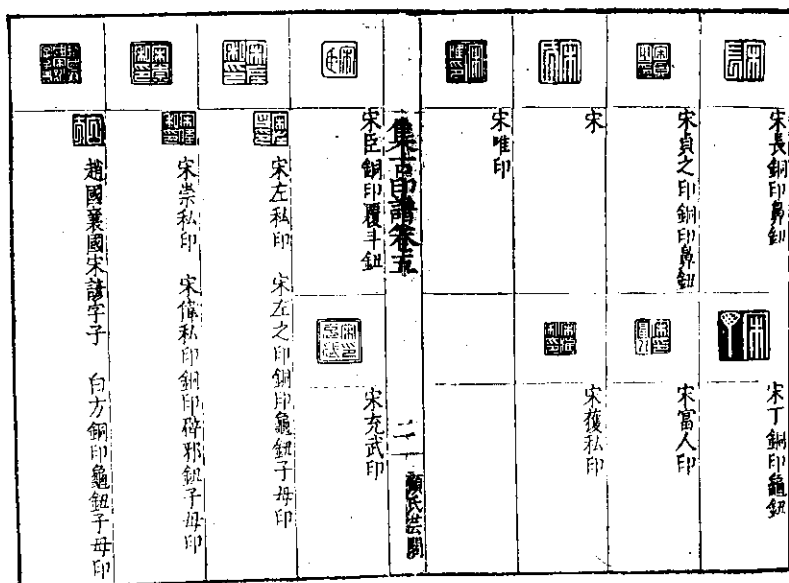 宋長銅印鼻鈕
宋丁銅印龜鈕
宋貞之印銅印鼻鈕
宋富人印
宋
宋獲私印
宋唯印
集古印譜卷五
二
顧氏芸閣
宋臣銅印覆斗鈕
宋充武印
宋左私印 宋左之印銅印龜鈕子母印
宋崇私印 宋偉私印銅印辟邪鈕子母印
趙國襄國宋諺字子 白方銅印龜鈕子母印